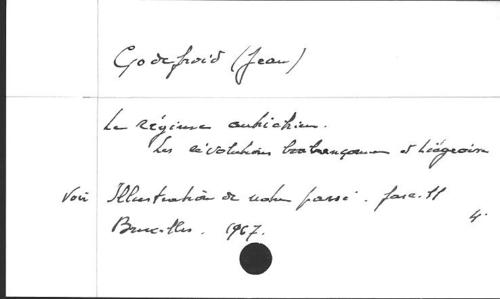 Godefroid (Jean)
Le régime autrichien.
Les révolutions brabançonne et liégeoise
Voir Illustration de notre passé. fasc. 11
4.
Bruxelles. 1967.